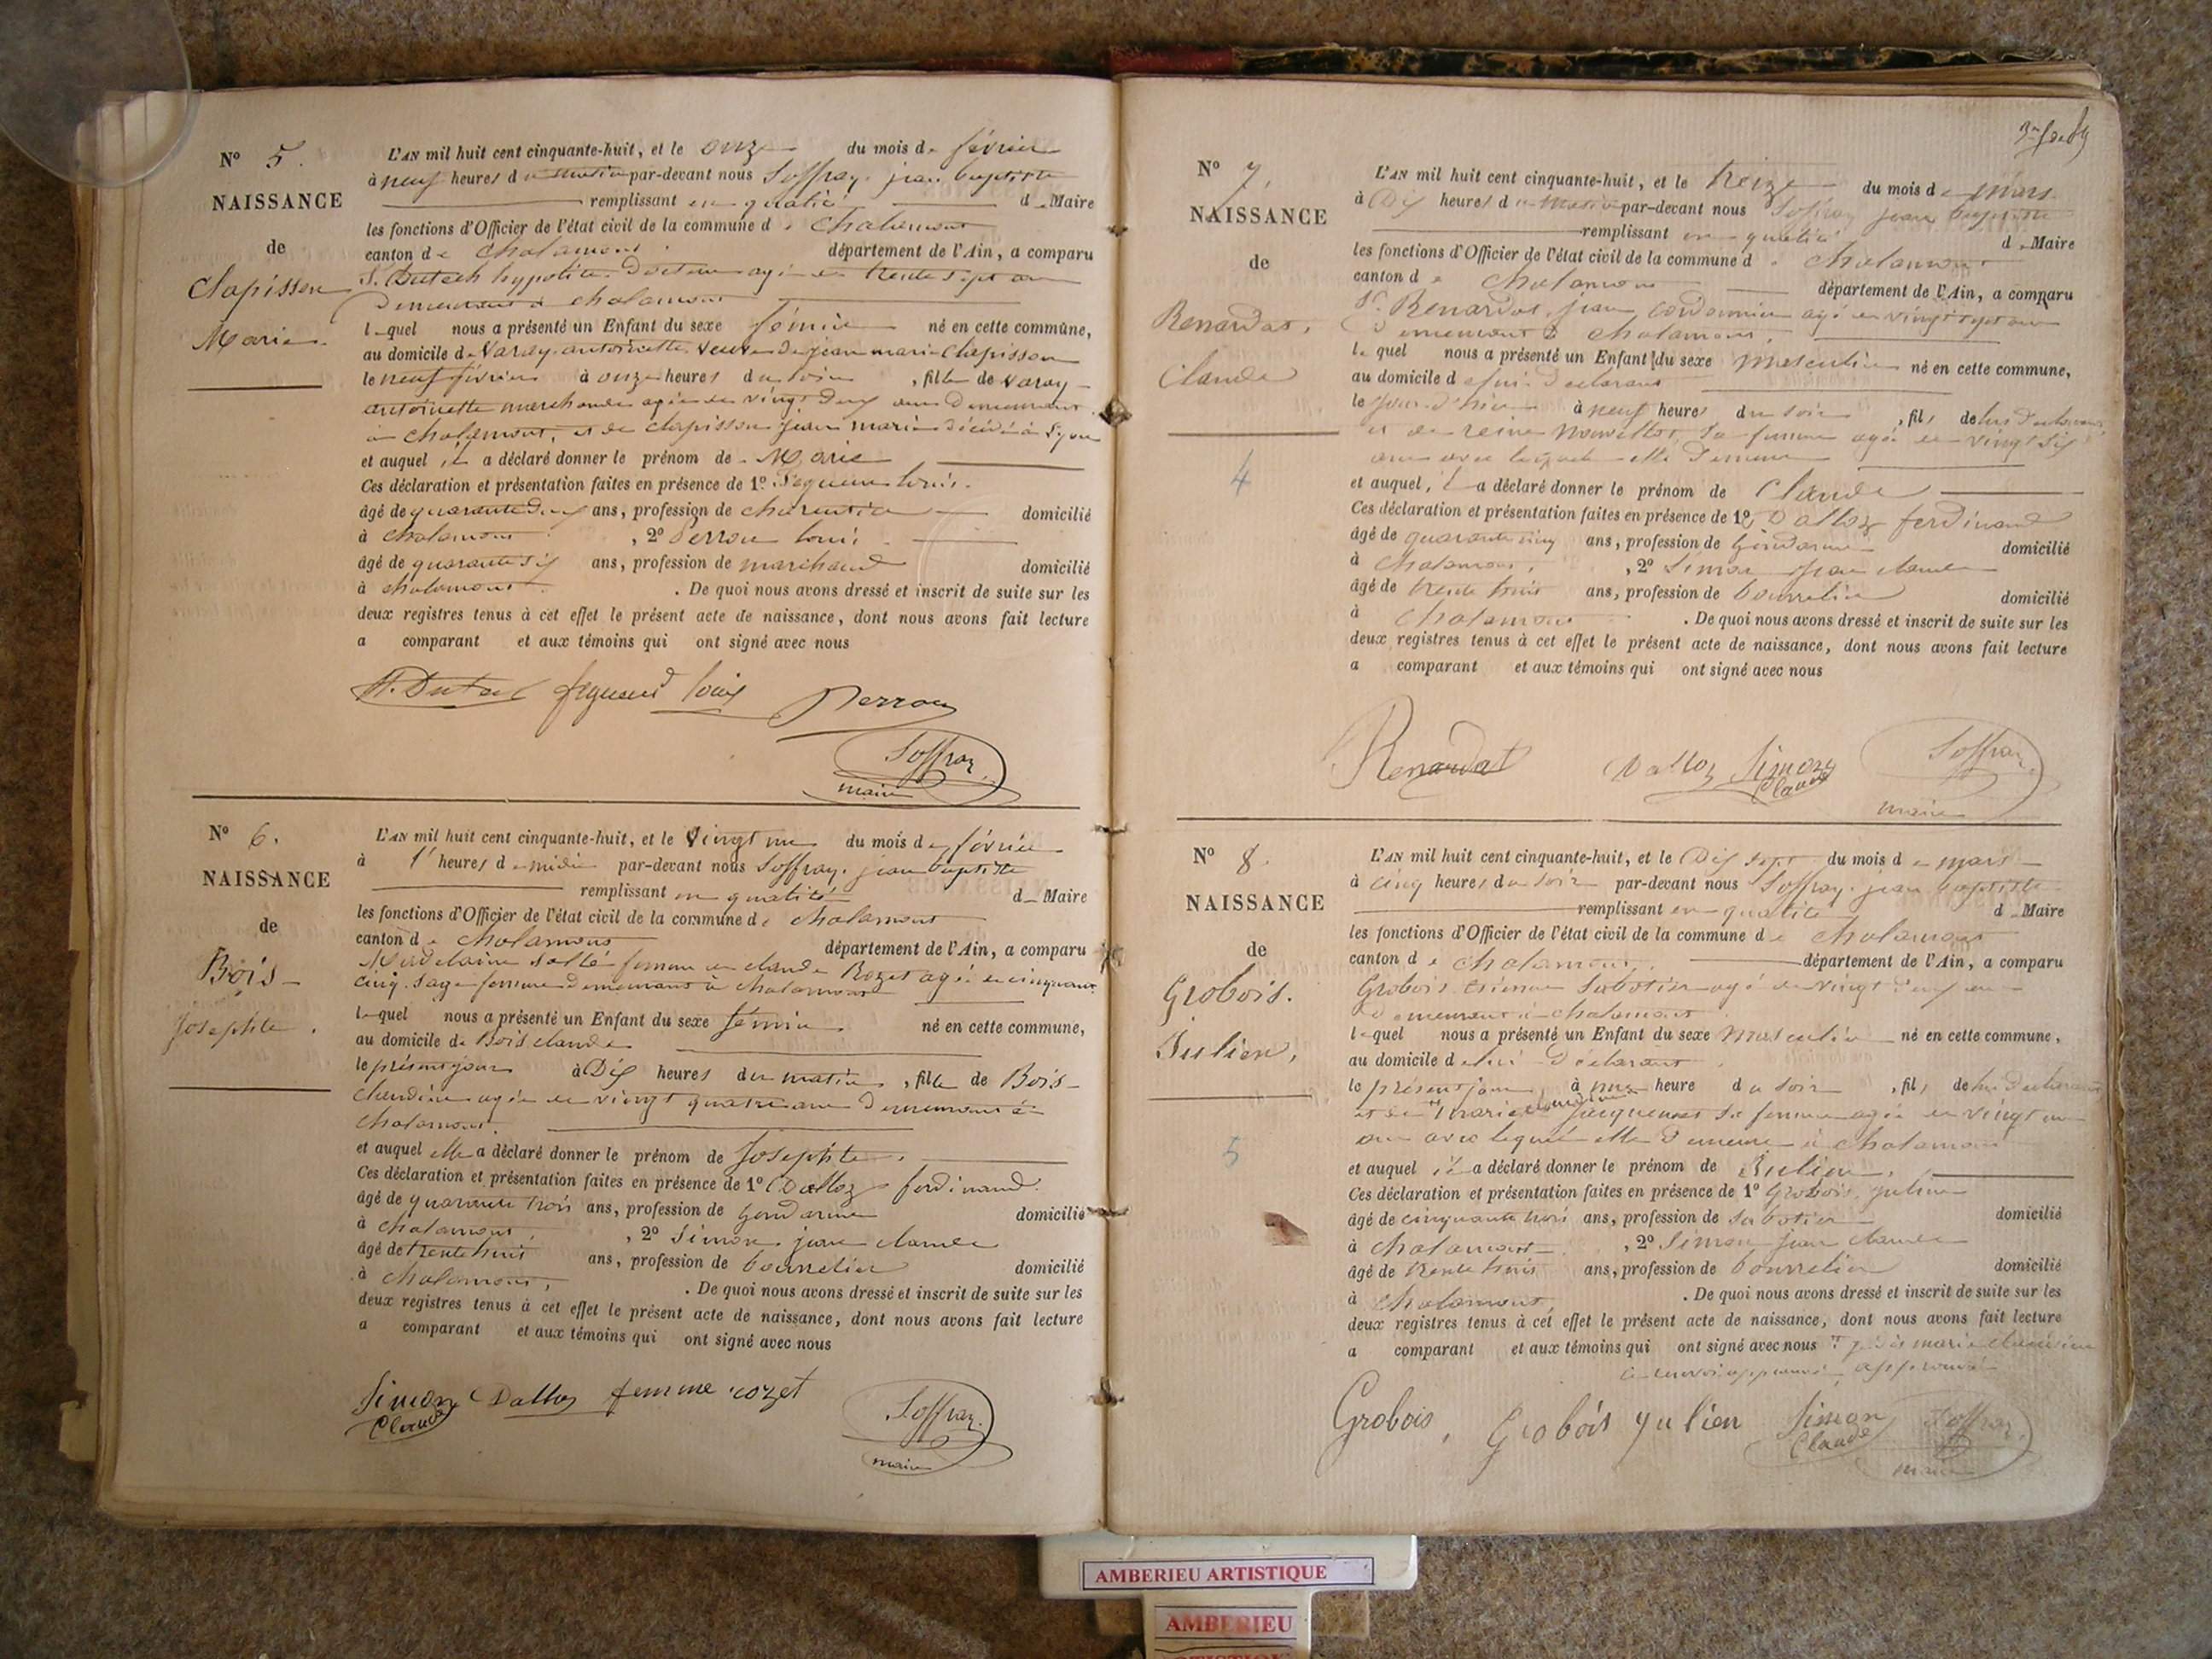 N° 5.
NAISSANCE
de
Clapisson
Marie.
L'AN mil huit cent cinquante-huit, et le onze du mois de février
à neuf heures du matin par-devant nous Soffray jean baptiste
remplissant en qualité d Maire
les fonctions d'Officier de l'état civil de la commune de Chalamont
canton de Chalamont département de l'Ain, a comparu
S. Dutech hypolite Docteur agé de trente sept ans
Demeurant à chalamont
lequel nous a présenté un Enfant du sexe féminin né en cette commune,
au domicile de Varay antoinette veuve de jean marie Clapisson
le neuf février à onze heures du soir, fille de Varay
antoinette marchande agée de vingt deux ans Demeurant
à Chalamont, et de clapisson jean marie décédé à Lyon
et auquel il a déclaré donner le prénom de Marie
Ces déclaration et présentation faites en présence de 1° louis.
âgé de quarante deux ans, profession de charentier domicilié
à chalamont, 2° Perron louis
âgé de quarante six ans, profession de marchand domicilié
à chalamont. De quoi nous avons dressé et inscrit de suite sur les
deux registres tenus à cet effet le présent acte de naissance, dont nous avons fait lecture
a comparant et aux témoins qui ont signé avec nous
louis Perron
Soffray
maire
N° 6.
NAISSANCE
de
Bois
Josephte.
L'AN mil huit cent cinquante-huit, et le Vingt un du mois de février
à 1 heures de midi par-devant nous Soffray jean baptiste
remplissant en qualité d Maire
les fonctions d'Officier de l'état civil de la commune de chalamont
canton de chalamont département de l'Ain, a comparu
femme de claude Rozet agée de cinquante
cinq sage femme Demeurant à chalamont
lequel nous a présenté un Enfant du sexe féminin né en cette commune,
au domicile de Bois claude
le présent jour à Dix heures du matin, fille de Bois
claudine agée de vingt quatre ans Demeurant à
chalamont.
et auquel elle a déclaré donner le prénom de Josephte.
Ces déclaration et présentation faites en présence de 1° Dalloz ferdinand.
âgé de quarante trois ans, profession de gendarme domicilié
à chalamont, 2° Simon jean claude
âgé de trente trois ans, profession de bourrelier domicilié
à chalamont, . De quoi nous avons dressé et inscrit de suite sur les
deux registres tenus à cet effet le présent acte de naissance, dont nous avons fait lecture
a comparant et aux témoins qui ont signé avec nous
Simon Dalloz femme rozet
Claude
Soffray
maire
N° 7.
NAISSANCE
de
Renardat,
Claude
4
L'AN mil huit cent cinquante-huit, et le treize du mois de mars
à Dix heures du matin par-devant nous Soffray jean baptiste
remplissant en qualité d Maire
les fonctions d'Officier de l'état civil de la commune de chalamont
canton de chalamont département de l'Ain, a comparu
Sr. Renardat, jean cordonnier agé de vingt sept ans
Demeurant à chalamont,
lequel nous a présenté un Enfant du sexe masculin né en cette commune,
au domicile de lui déclarant
le jour d'hier à neuf heures du soir, fils de lui déclarant
et de reine sa femme agée de vingt six
ans avec laquelle elle Demeure
et auquel, il a déclaré donner le prénom de Claude
Ces déclaration et présentation faites en présence de 1° Dalloz ferdinand
âgé de quarante cinq ans, profession de Gendarme domicilié
à chalamont, 2° Simon jean claude
âgé de trente trois ans, profession de bourrelier domicilié
à chalamont. De quoi nous avons dressé et inscrit de suite sur les
deux registres tenus à cet effet le présent acte de naissance, dont nous avons fait lecture
a comparant et aux témoins qui ont signé avec nous
Renardat Dalloz Simon
Claude
Soffray
maire
N° 8.
NAISSANCE
de
Grobois.
Julien,
5
L'AN mil huit cent cinquante-huit, et le Dix sept du mois de mars
à cinq heures du soir par-devant nous Soffray jean baptiste
remplissant en qualité d Maire
les fonctions d'Officier de l'état civil de la commune de chalamont
canton de chalamont. département de l'Ain, a comparu
Grobois Etienne Sabotier agé de vingt ans
Demeurant à chalamont.
lequel nous a présenté un Enfant du sexe masculin né en cette commune,
au domicile de lui Déclarant
le présent jour à une heure du soir, fils de lui déclarant
et de marie jacquenet sa femme agée de vingt un
ans avec lequel elle Demeure à chalamont
et auquel il a déclaré donner le prénom de Julien.
Ces déclaration et présentation faites en présence de 1° Grobois julien
âgé de cinquante trois ans, profession de sabotier domicilié
à chalamont, 2° Simon jean claude
âgé de trente trois ans, profession de bourrelier domicilié
à chalamont, . De quoi nous avons dressé et inscrit de suite sur les
deux registres tenus à cet effet le présent acte de naissance, dont nous avons fait lecture
a comparant et aux témoins qui ont signé avec nous
approuvé
Grobois, Grobois yulien Simon
Claude
Soffray
maire
AMBERIEU ARTISTIQUE
AMBERIEU
ARTISTIQUE